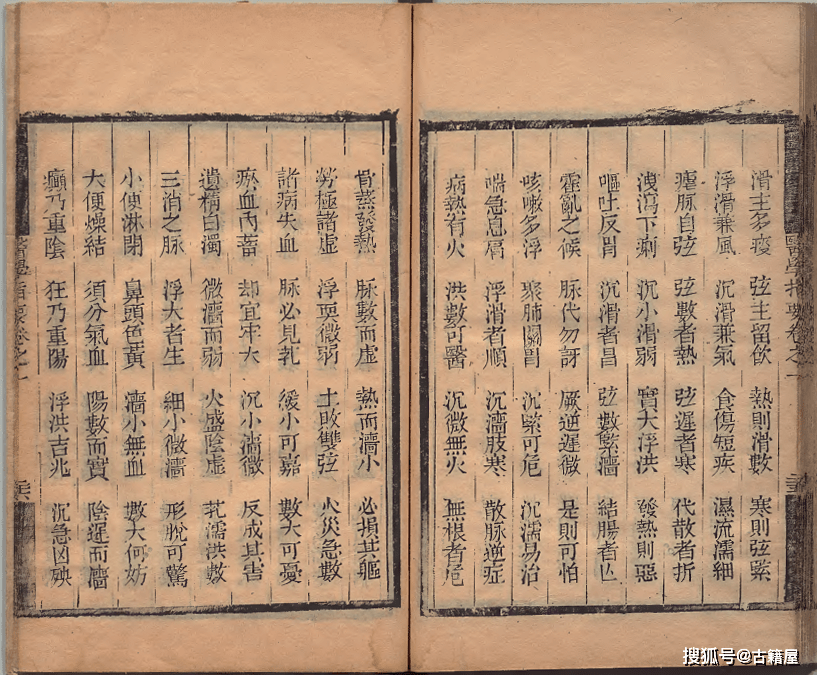 滑主多痰 弦主留飲 熱則滑數 寒則弦緊
浮滑兼風 沉滑兼氣 食傷短疾 濕流濡細
瘧脉自弦 弦數者熱 弦遲者寒 代散者折
洩瀉下痢 沉小滑弱 實大浮洪 發熱則惡
嘔吐反胃 沉滑者昌 弦數緊濇 結腸者亡
霍亂之候 脉代勿訝 厥逆遲微 是則可怕
咳嗽多浮 聚肺關胃 沉緊可危 沉濡易治
喘急息肩 浮滑者順 沉濇肢寒 散脉逆症
病熱有火 洪數可醫 沉微無火 無根者危
骨蒸發熱 脉數而虛 熱而濇小 必損其軀
勞極諸虛 浮耎微弱 土敗雙弦 火災急數
諸病失血 脉必見芤 緩小可嘉 數大可憂
瘀血內蓄 却宜牢大 沉小濇微 反成其害
遺精白濁 微濇而弱 火盛陰虛 芤濡洪數
三消之脉 浮大者生 細小微濇 形脫可驚
小便淋閉 鼻頭色黃 濇小無血 數大何妨
大便燥結 須分氣血 陽數而實 陰遲而濇
癲乃重陰 狂乃重陽 浮洪吉兆 沉急凶殃
醫學指要卷之一
搜狐号@古籍屋